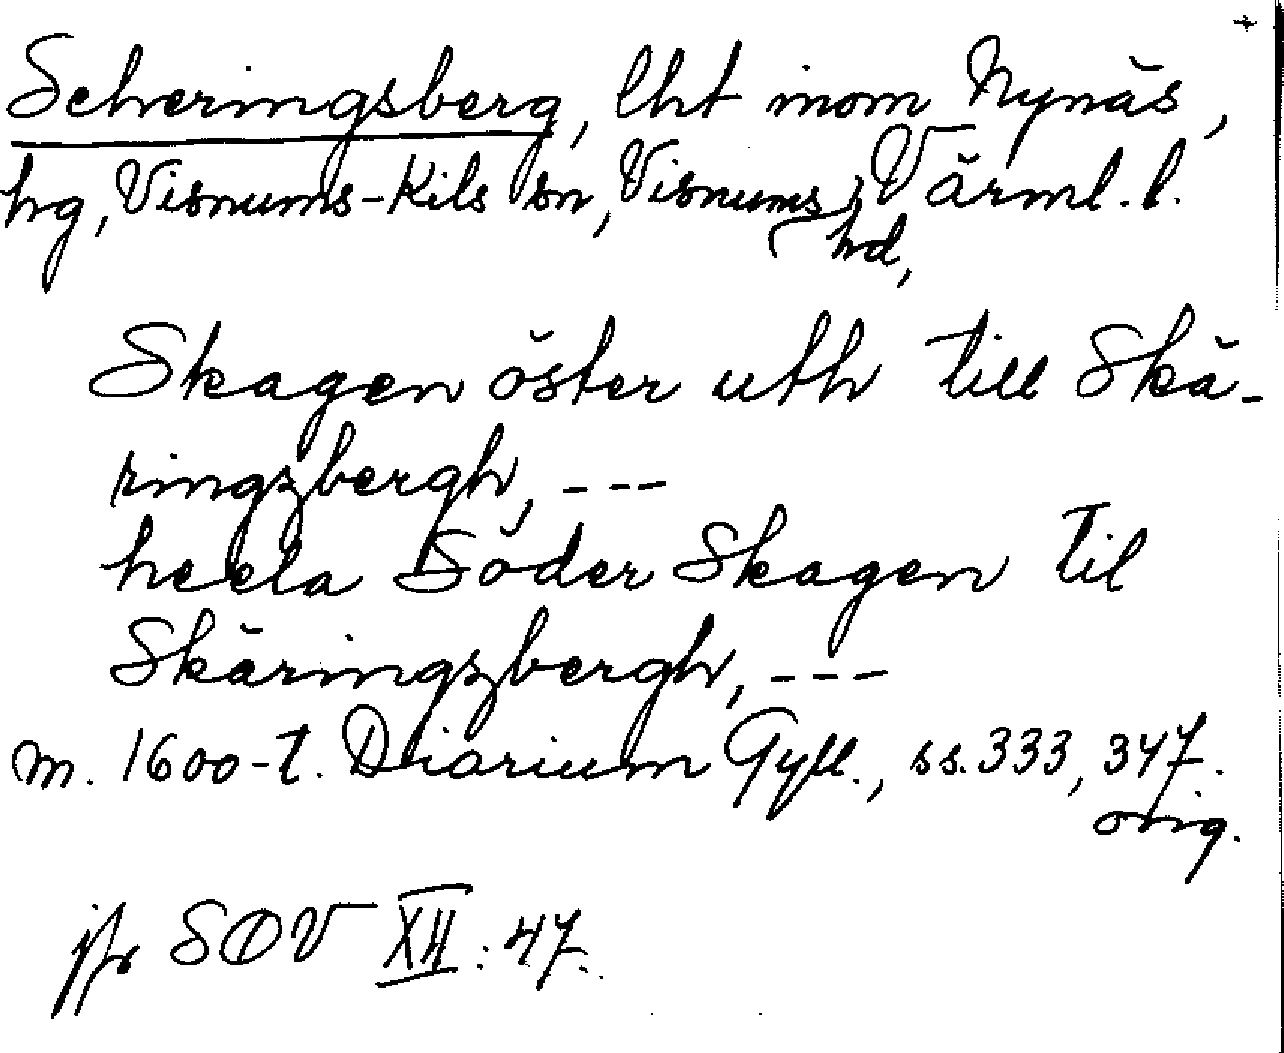 Scheringsberg, lht inom Nynäs,
hg, Visnums-Kils sn, Visnums hd, Värml. l.
Skagen öster uth till Skä-
ringzbergh, ---
heela Söder Skagen til
Skäringzbergh, ---
m. 1600-t. Diarium Gyll., ss. 333, 347.
orig.
jfr SOV XII: 47.